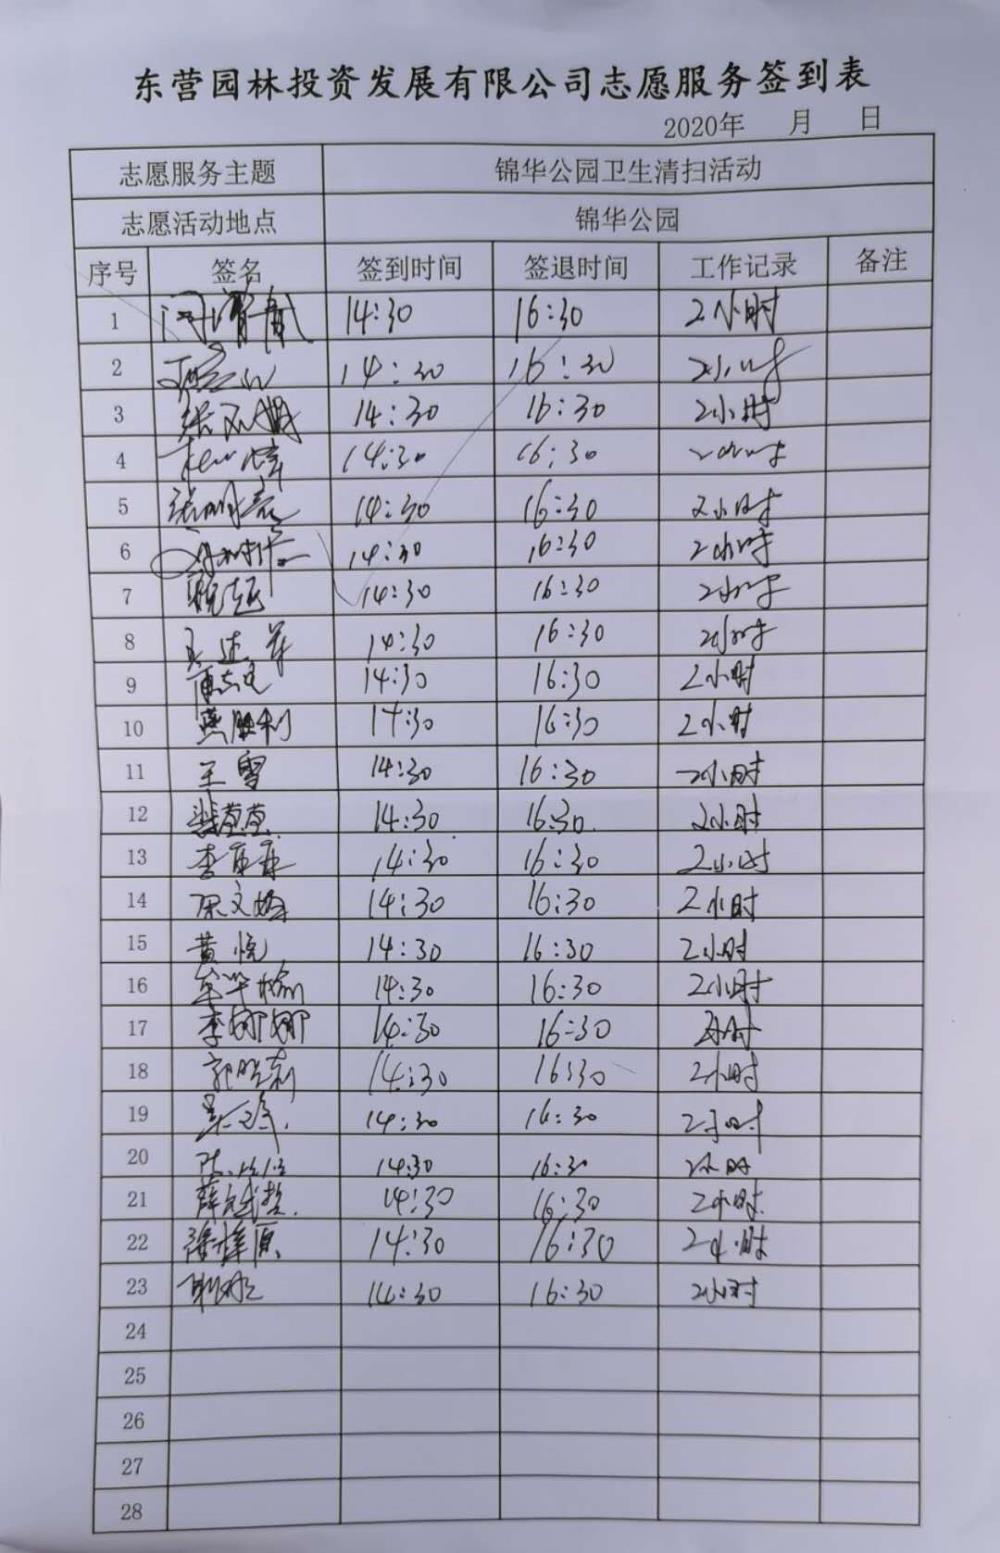 东营园林投资发展有限公司志愿服务签到表
2020年 月 日
志愿服务主题 锦华公园卫生清扫活动
志愿活动地点 锦华公园
序号 签名 签到时间 签退时间 工作记录 备注
1 14:30 16:30 2小时
2 14:30 16:30 2小时
3 14:30 16:30 2小时
4 14:30 16:30 2小时
5 14:30 16:30 2小时
6 14:30 16:30 2小时
7 14:30 16:30 2小时
8 14:30 16:30 2小时
9 14:30 16:30 2小时
10 燕胜利 14:30 16:30 2小时
11 王雪 14:30 16:30 2小时
12 14:30 16:30 2小时
13 14:30 16:30 2小时
14 14:30 16:30 2小时
15 黄悦 14:30 16:30 2小时
16 14:30 16:30 2小时
17 李娜娜 14:30 16:30 2小时
18 14:30 16:30 2小时
19 14:30 16:30 2小时
20 14:30 16:30 2小时
21 14:30 16:30 2小时
22 14:30 16:30 2小时
23 14:30 16:30 2小时
24
25
26
27
28